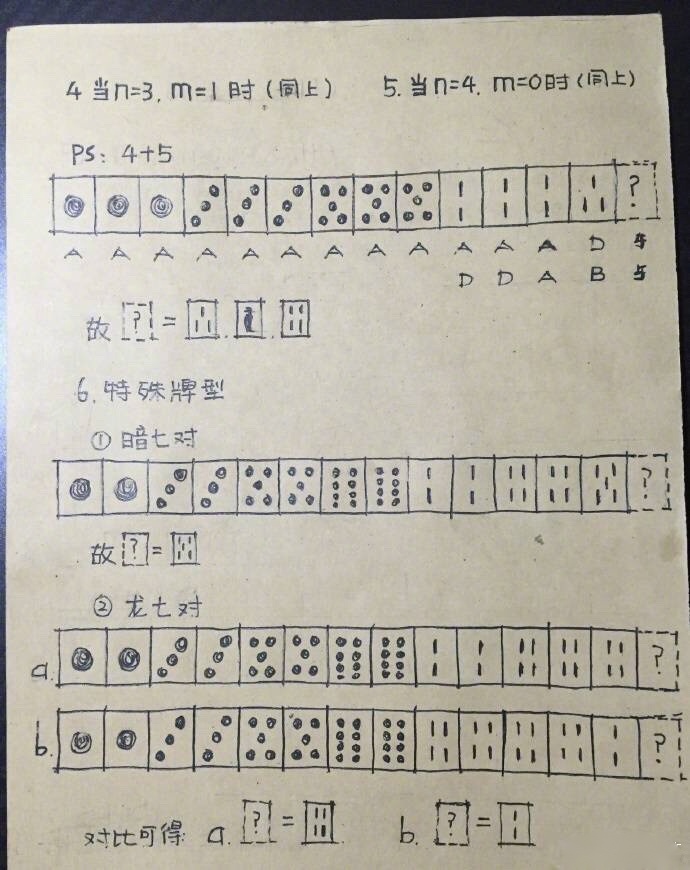 4 当n=3, m=1时(同上) 5. 当n=4, m=0时(同上)
PS: 4+5
?
A A A A A A A A A A A A D 与
D D A B 与
故 ? = , ,
6. 特殊牌型
① 暗七对
?
故 ? =
② 龙七对
a. ?
b. ?
对比可得: a. ? = b. ? =